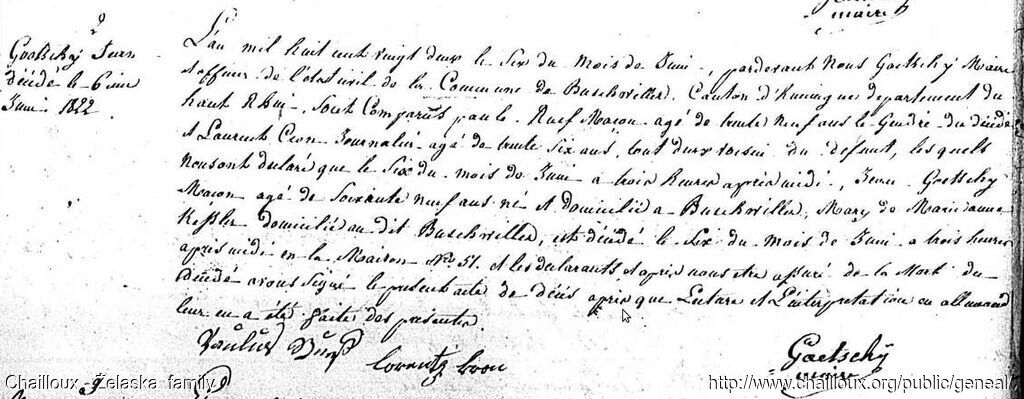 maire
9
Goetschy Jean
décédé le 6 ime
Juni 1822
L'an mil huit cent vingt deux le six du mois de Juni, pardevant Nous Goetschy Maire
et officier de l'état civil de la Commune de Buschwiller, Canton d'huningue departement du
haut Rhin, sont Comparus paule Ruef Macon agé de trente Neuf ans le Gendre du décédé
et Laurent Cron Journalié agé de trente six ans, tout deux voisin du defunt, les quels
nous ont dularé que le six du mois de Juni a trois heures après midi, Jean Goetschy
Macon agé de soixante neuf ans né et domicilié a Buschwiller, Mary de Marie anne
Keßler domiciliée au dit Buschwiller, est décédé le six du mois de Juni a trois heures
après midi en la Maison No 51. et les dularants et après nous etre assuré de la Mort du
décédé avons signé le present acte de décès après que Lecture et L'interpretation en allemand
leur en a été faite des presente.
Paulus Ruef
Lorentz Cron
Goetschy
maire
9
Chailloux - Zelaska family
http://www.chailloux.org/public/geneal/